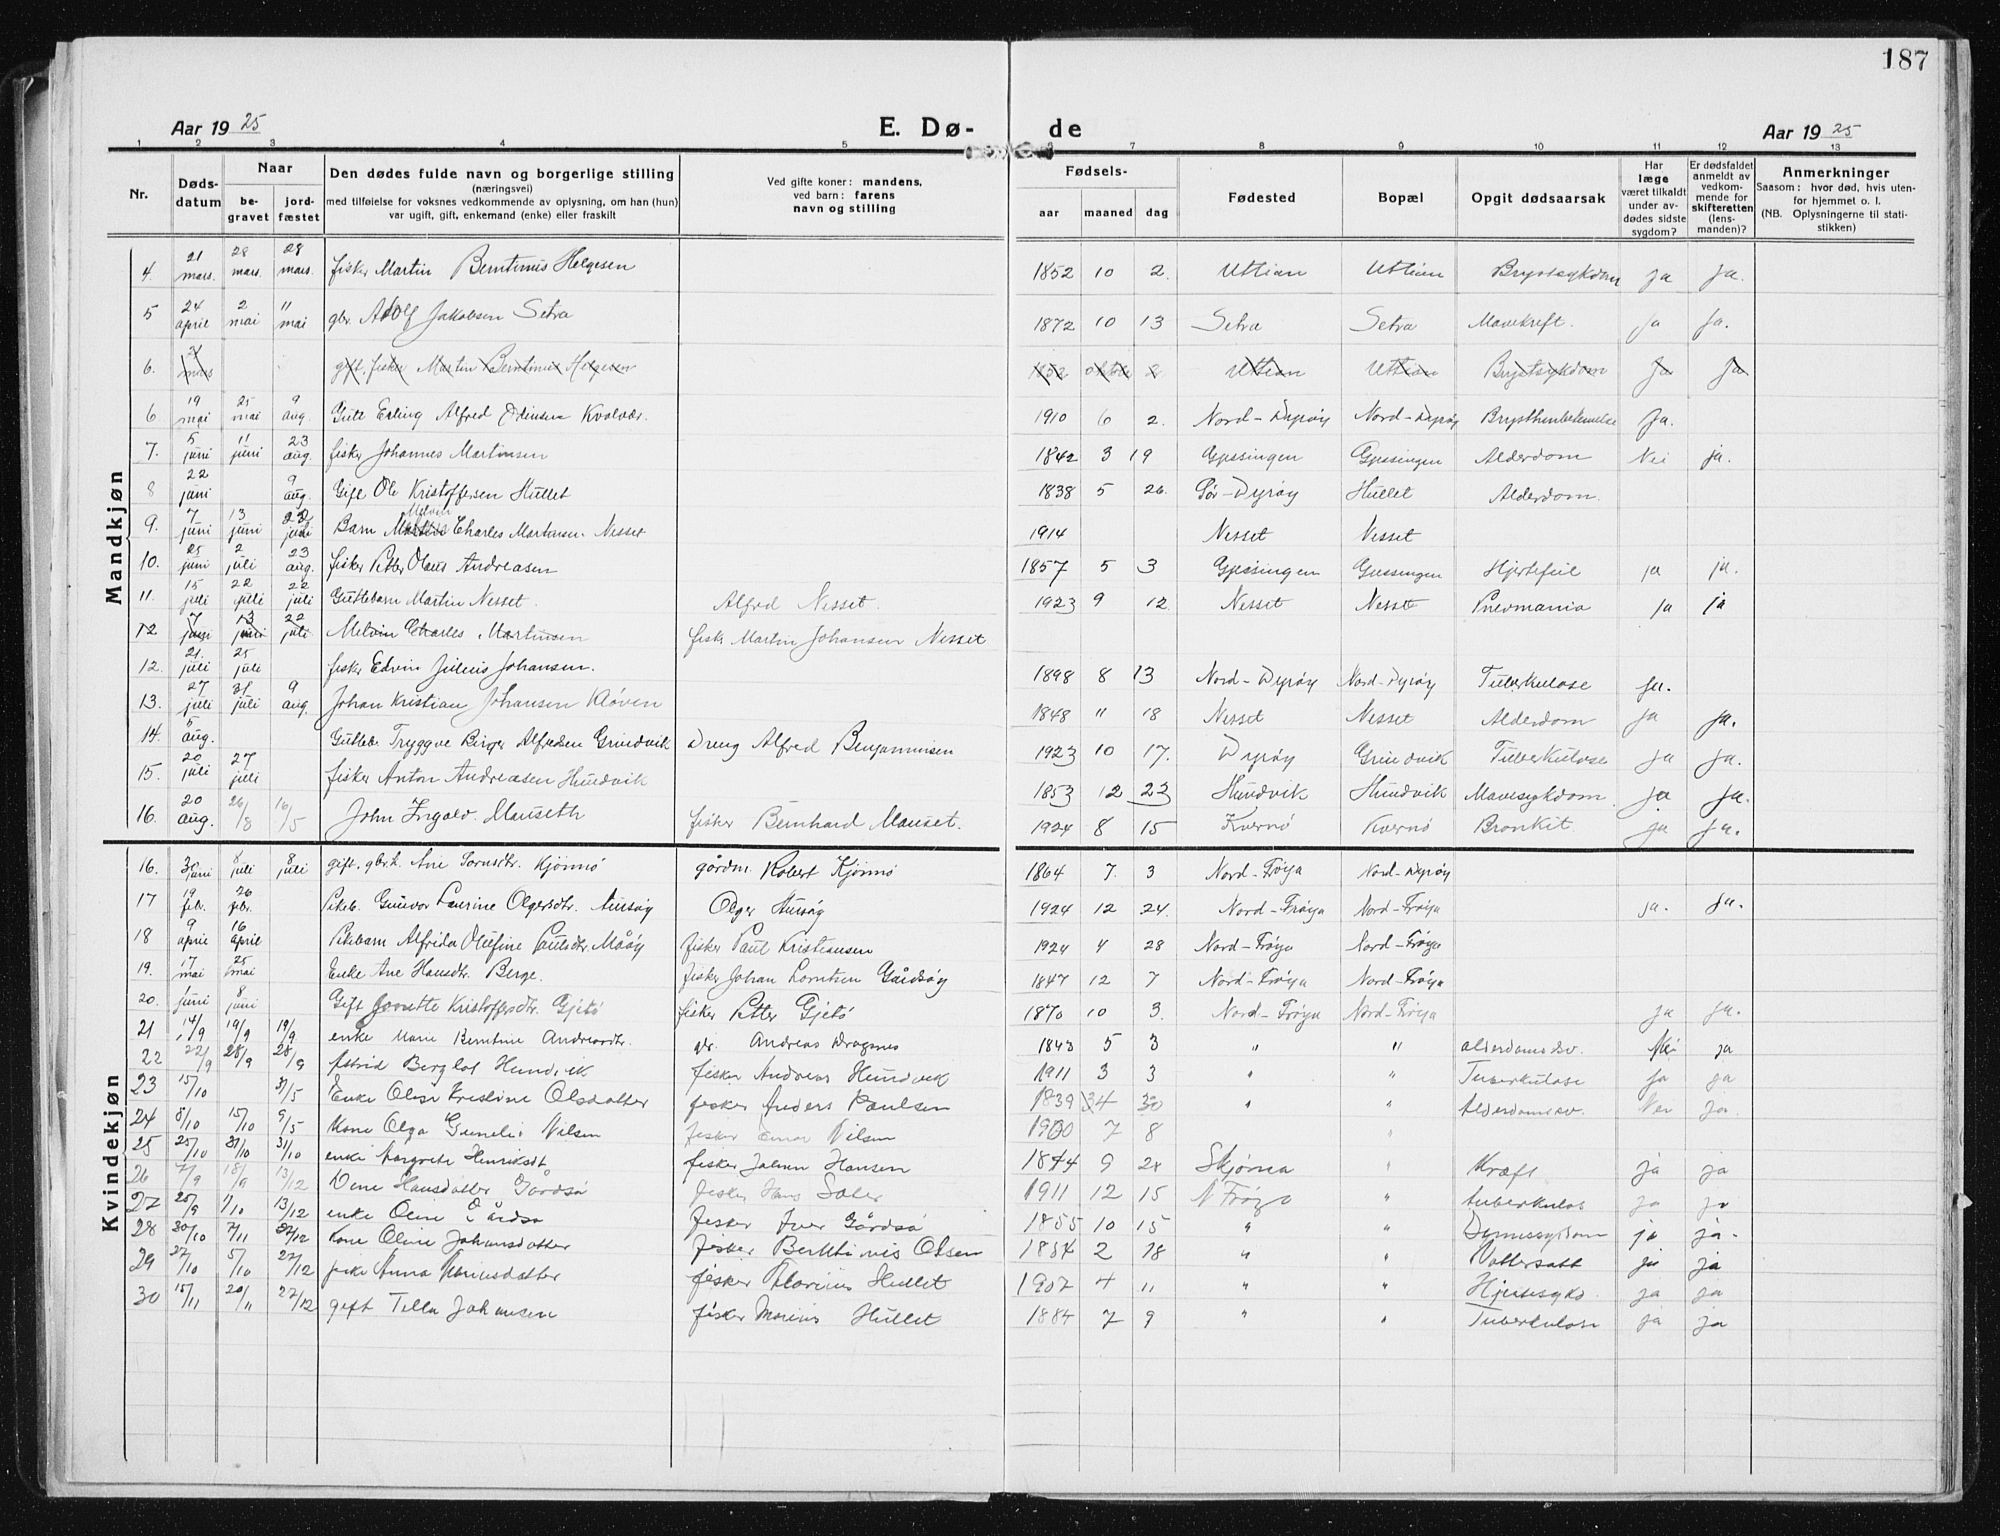 187
Aar 19 25
E. Dø-
de
Aar 19 25
1 2 3 4 5 6 7 8 9 10 11 12 13
Nr.
Døds-
datum
Naar
be-
gravet
jord-
fæstet
Den dødes fulde navn og borgerlige stilling
(næringsvei)
med tilføielse for voksnes vedkommende av oplysning, om han (hun)
var ugift, gift, enkemand (enke) eller fraskilt
Ved gifte koner: mandens,
ved barn: farens
navn og stilling
Fødsels-
aar maaned dag
Fødested
Bopæl
Opgit dødsaarsak
Har
læge
været tilkaldt
under av-
dødes sidste
sygdom?
Er dødsfaldet
anmeldt av
vedkom-
mende for
skifteretten
(lens-
manden)?
Anmerkninger
Saasom: hvor død, hvis uten-
for hjemmet o. l.
(NB. Oplysningerne til stati-
stikken)
Mandkjøn
4. 21 mars. 28 mars. 28 mars. fisker Martin Berntinus Helgesen 1852 10 2. Uttian Uttian Brystsykdom ja ja.
5 24 april 2 mai 11 mai gbr. Adolf Jakobsen Setra 1872 10 13 Setra Setra Mavekreft. ja ja.
6. 21 mars gift, fisker Martin Berntinus Helgesen 1852 8 Uttian Uttian Brystsykdom ja ja
6 19 mai 25 mai 9 aug. Gutt Erling Alfred Odinsen Kvalvær. 1910 6 2. Nord-Dyrøy Nord-Dyrøy ja.
7. 5 juni 11 juni 23 aug. fisker Johannes Martinsen 1842 3 19 Gjæsingen Gjæsingen Alderdom Nei ja.
8 22 juni 9 aug. Gift Ole Kristoffersen Hullet 1838 5 26. Sør-Dyrøy Hullet Alderdom.
9. 7 juni 13 juni 22 juli Barn Melvin Charles Martinsen. Nesset 1914 Nesset Nesset
10. 25 juni 2 juli 23 aug. fisker Petter Olaus Andreasen 1857 5 3 Gjæsingen Gjæsingen Hjertefeil ja ja.
11. 15 juli 22 juli 22 juli Guttebarn Martin Nesset. Alfred Nesset. 1923 9 12. Nesset Nesset Pnevmania ja ja
12 7 juni 13 juni 22 juli Melvin Charles Martinsen fisk. Martin Johansen Nesset
12. 21. juli 25 juli fisker Edvin Julius Johansen. 1898 8 13 Nord-Dyrøy Nord-Dyrøy Tuberkulose ja.
13. 27 juli 31 juli 9 aug. Johan Kristian Johansen Kløven 1848 11 18 Nesset Nesset Alderdom ja ja.
14. 5 aug. Gutteb. Tryggve Birger Alfredsen Grindvik Dreng Alfred Benjaminsen 1923 10 17. Dyrøy Grindvik Tuberkulose ja ja.
15. 20 juli 27 juli fisker Anton Andreasen Hundvik 1853 12 23 Hundvik Hundvik Mavesykdom. ja ja.
16. 20 aug. 26/8 16/5 John Ingald Mauseth fisker Bernhard Mauset. 1924 8 15 Kvernø Kvernø Bronkit ja ja.
Kvindekjøn
16. 30 juni 8 juli 8 juli gift. gbr.k. Ane Kjønnø gårdm. Robert Kjønnø 1864 7. 3 Nord-Frøya Nord-Dyrøy
17 19 febr. 26 febr. Pikeb. Gunvor Laurine Olgersdtr. Aursøy Olger Aursøy 1924 12 24. Nord-Frøya Nord-Frøya ja. ja.
18 9 april 16 april Pikebarn Alfrida Olufine Paulsdtr. Måøy fisker Paul Kristiansen 1924 4 28 Nord-Frøya Nord-Frøya
19. 17 mai 25 mai Enke Ane Hansdtr. Berge. fisker Johan Lorntsen Gårdsøy 1847 12 7 Nord-Frøya Nord-Frøya
20. 1 juni 8 juni Gift Jonette Kristoffersdtr. Gjetø fisker Petter Gjetø 1870 10 3. Nord-Frøya Nord-Frøya ja ja.
21 14/9 19/9 19/9 enke Marie Berntine Andreasdtr. gbr. Andreas Dragsnes 1843 5 3 " " alderdomssv. Nei ja
22 22/9 28/9 28/9 Astrid Berglot Hundvik fisker Andreas Hundvik 1911 3 3 " " Tuberkulose ja ja
23 15/10 31/5 Enke Olise Kristine Olsdatter fisker Anders Paulsen 1839 4 30 " " Alderdomssv. Nei ja.
24 8/10 15/10 9/5 Kone Olga Gunelie Nilsen fisker Einar Nilsen 1900 7 8 "
25 25/10 31/10 31/10 enke Margrete Henriksdt fisker Johan Hansen 1844 9 24 Skjørna " Kræft ja ja
26 7/9 18/9 13/12 Dene Hansdatter Gårdsø fisker Hans Soler 1911 12 15 N Frøya " tuberkulos ja ja
27 25/9 1/10 13/12 enke Oline Gårdsø fisker Iver Gårdsø 1855 10 15 " " ja ja.
28 30/10 7/11 27/12 Kone Oline Johansdatter fisker Berntinus Olsen 1854 2 18 " " Vattersott ja ja
29 27/10 5/10 27/12 Anna fisker Florius Hullet 1907 4 11 " " Hjertesykd. ja ja
30 15/11 20/11 27/12 gift Tella Johansen fisker Marius Hullet 1884 7 9 " " Tuberkulose ja ja